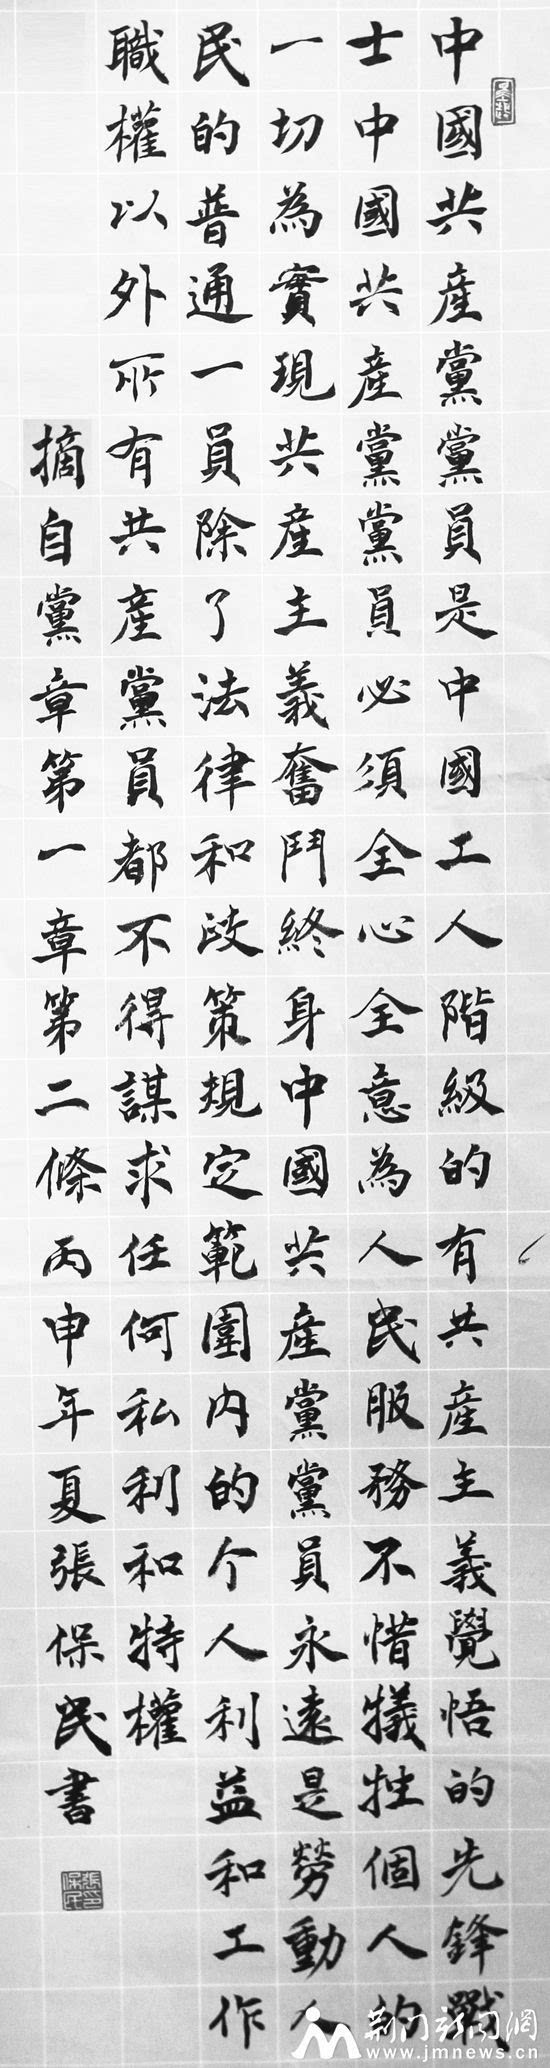 中國共産黨黨員是中國工人階級的有共産主義覺悟的先鋒戰
士中國共産黨黨員必須全心全意為人民服務不惜犠牲個人的
一切為實現共産主義奮鬥終身中國共産黨黨員永遠是勞動人
民的普通一員除了法律和政策規定範圍内的个人利益和工作
職權以外所有共産黨員都不得謀求任何私利和特權
摘自黨章第一章第二條丙申年夏張保民書
張保民印
荆门新闻網
www.jmnews.cn